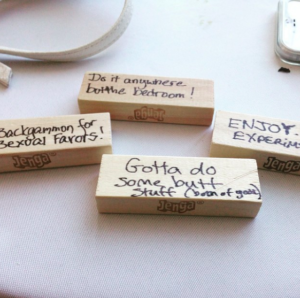 Do it anywhere
but the Bedroom!
Jenga
Backgammon for
sexual Favors!
Jenga
ENJOY
EXPERIM
Gotta do
some butt
stuff
Jenga